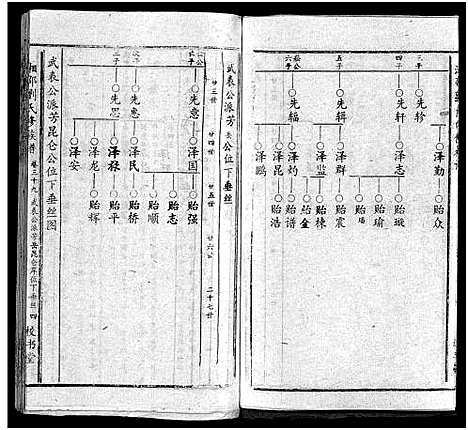 三子
○先轸
○泽勤
○贻众
四子
○先轩
○泽志
○贻璇
○贻瑜
○贻玚
五子
○先辑
○泽群
○贻震
○贻栋
六子
○先辐
○泽灼
○贻金
○贻谱
○泽昆
○贻浩
○泽鹏
武表公派芳岳公位下垂丝
廿三世
廿四世
廿五世
廿六
二十七世
长子
○先意
○泽国
○贻强
○贻志
○贻顺
次子
○先惠
○泽民
○贻桥
三子
○先思
○泽禄
○贻平
○泽龙
○贻辉
○泽安
武表公派芳昆仑公位下垂丝图
刘氏
族谱
卷三十九
武表公派芳岳昆仑
位下垂丝
四
校书堂